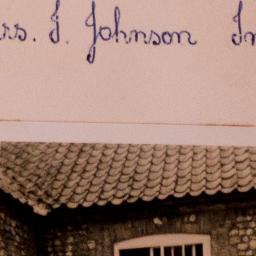 rs. J. Johnson